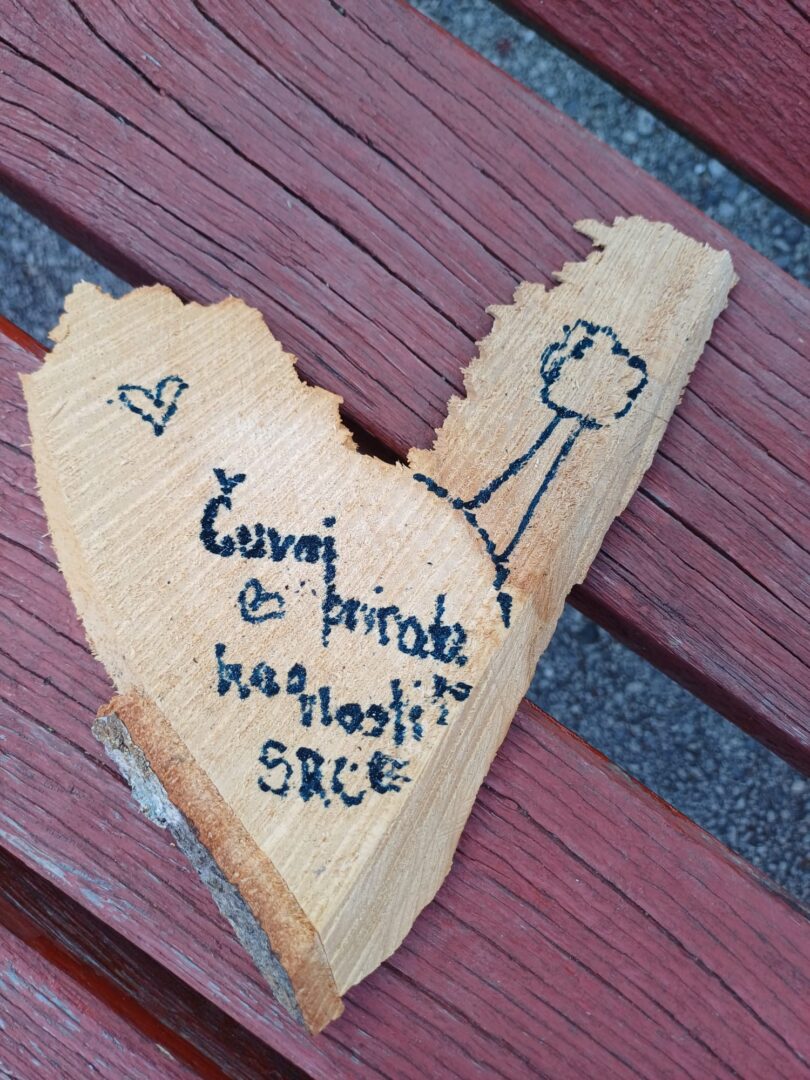 Čuvaj
prirodu
kao vlastito
SRCE